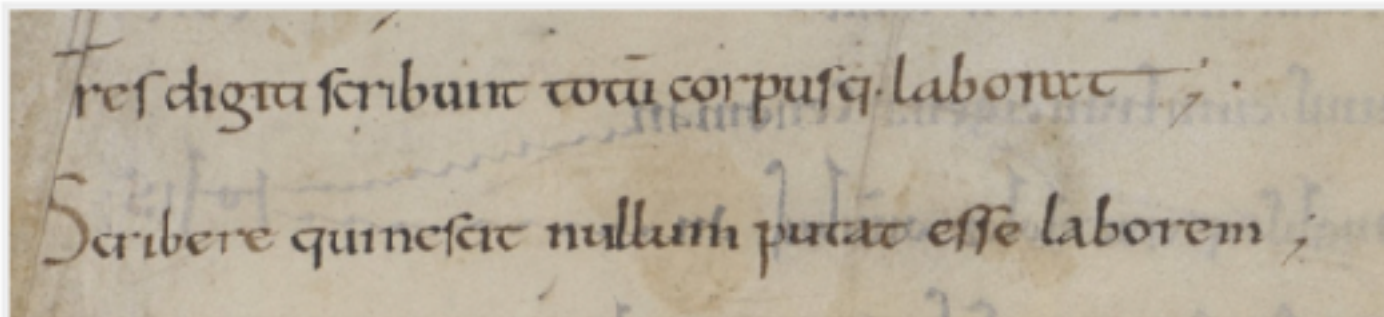 Tres digiti scribunt totū corpusq. laborat ;.
Scribere qui nescit nullum putat esse laborem ;